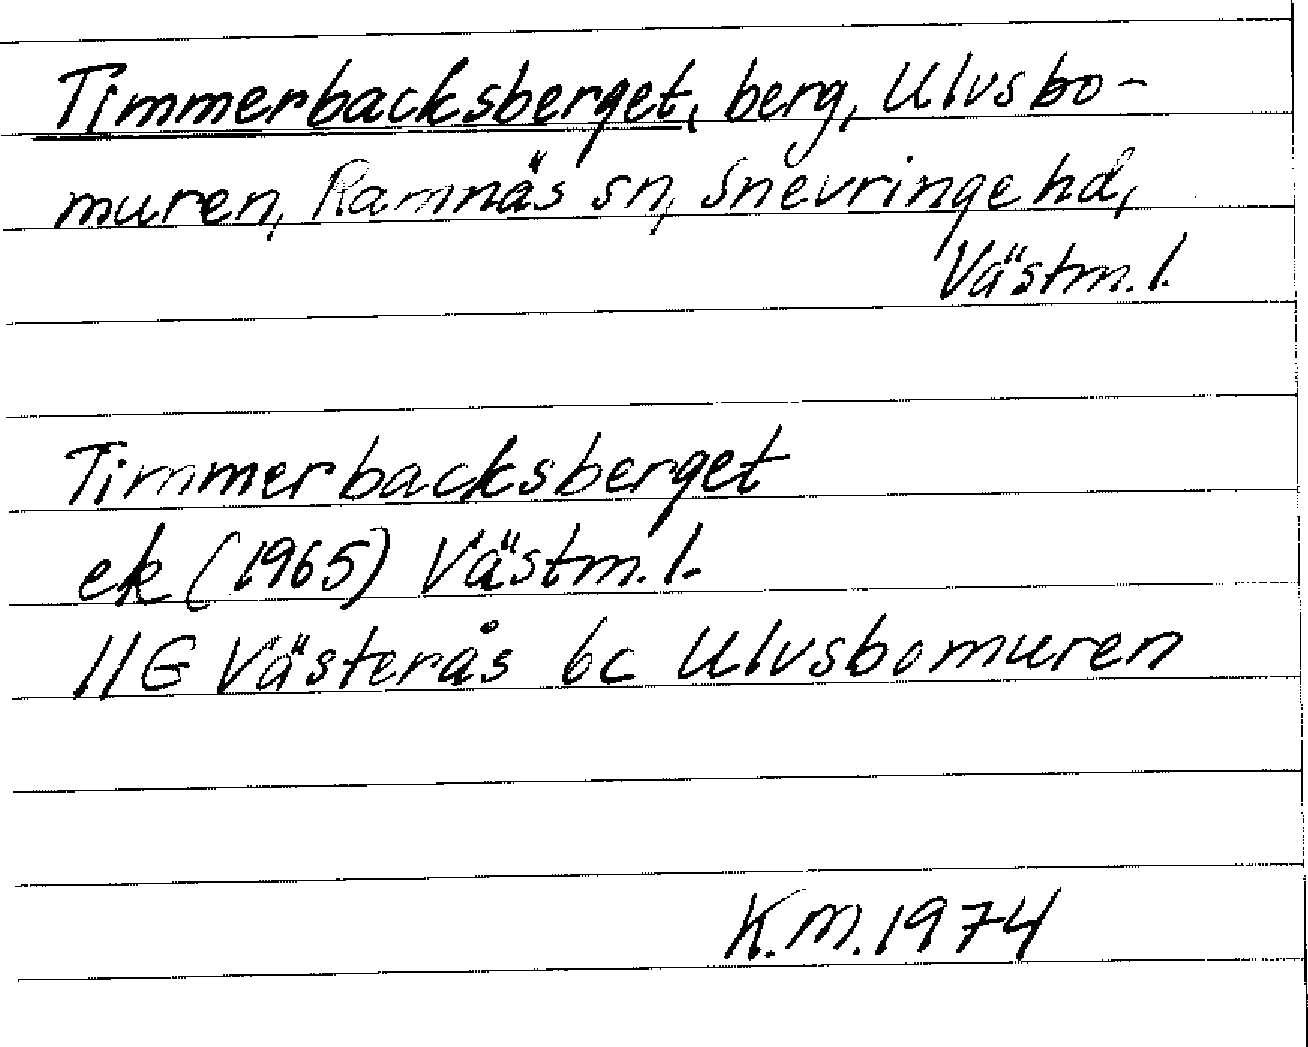 Timmerbacksberget, berg, Ulvsbo-
muren, Ramnäs sn, Snevringe hd,
Västm. l.
Timmerbacksberget
ek (1965) Västm. l.
11G Västerås 6c Ulvsbomuren
K.M. 1974